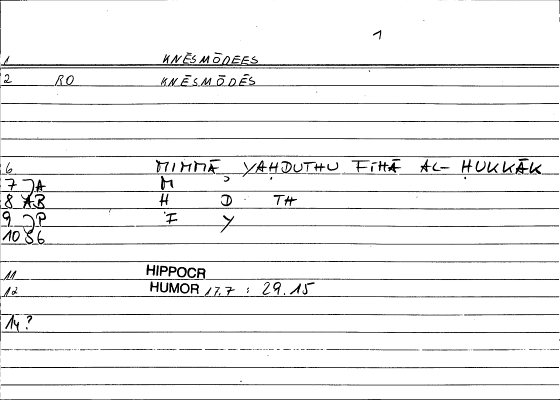 1
1 KNĒSMŌDEES
2 RO KNĒSMŌDĒS
6 MIMMĀ YAḤDUTHU FĪHĀ AL- ḤUKKĀK
7 A M
8 AB H D TH
9 P F Y
10 S6
11 HIPPOCR
12 HUMOR 17.7 : 29.15
14 ?